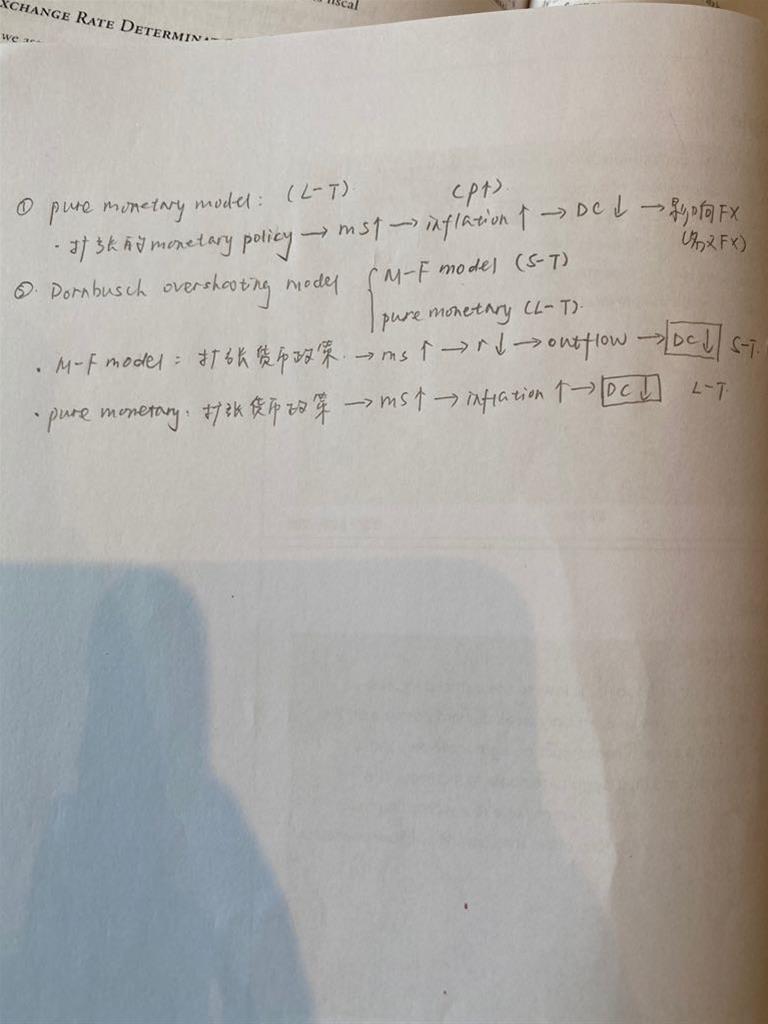 XCHANGE RATE DETERMINAT
fiscal
we
① pure monetary model: (L-T) (P↑).
· 扩张的monetary policy → ms↑ → inflation ↑ → DC ↓ → 影响FX
(名义FX)
②. Dornbusch overshooting model { M-F model (S-T)
pure monetary (L-T).
· M-F model: 扩张货币政策. → ms ↑ → r ↓ → outflow → DC↓ S-T.
· pure monetary: 扩张货币政策 → ms↑ → inflation ↑ → DC↓ L-T.